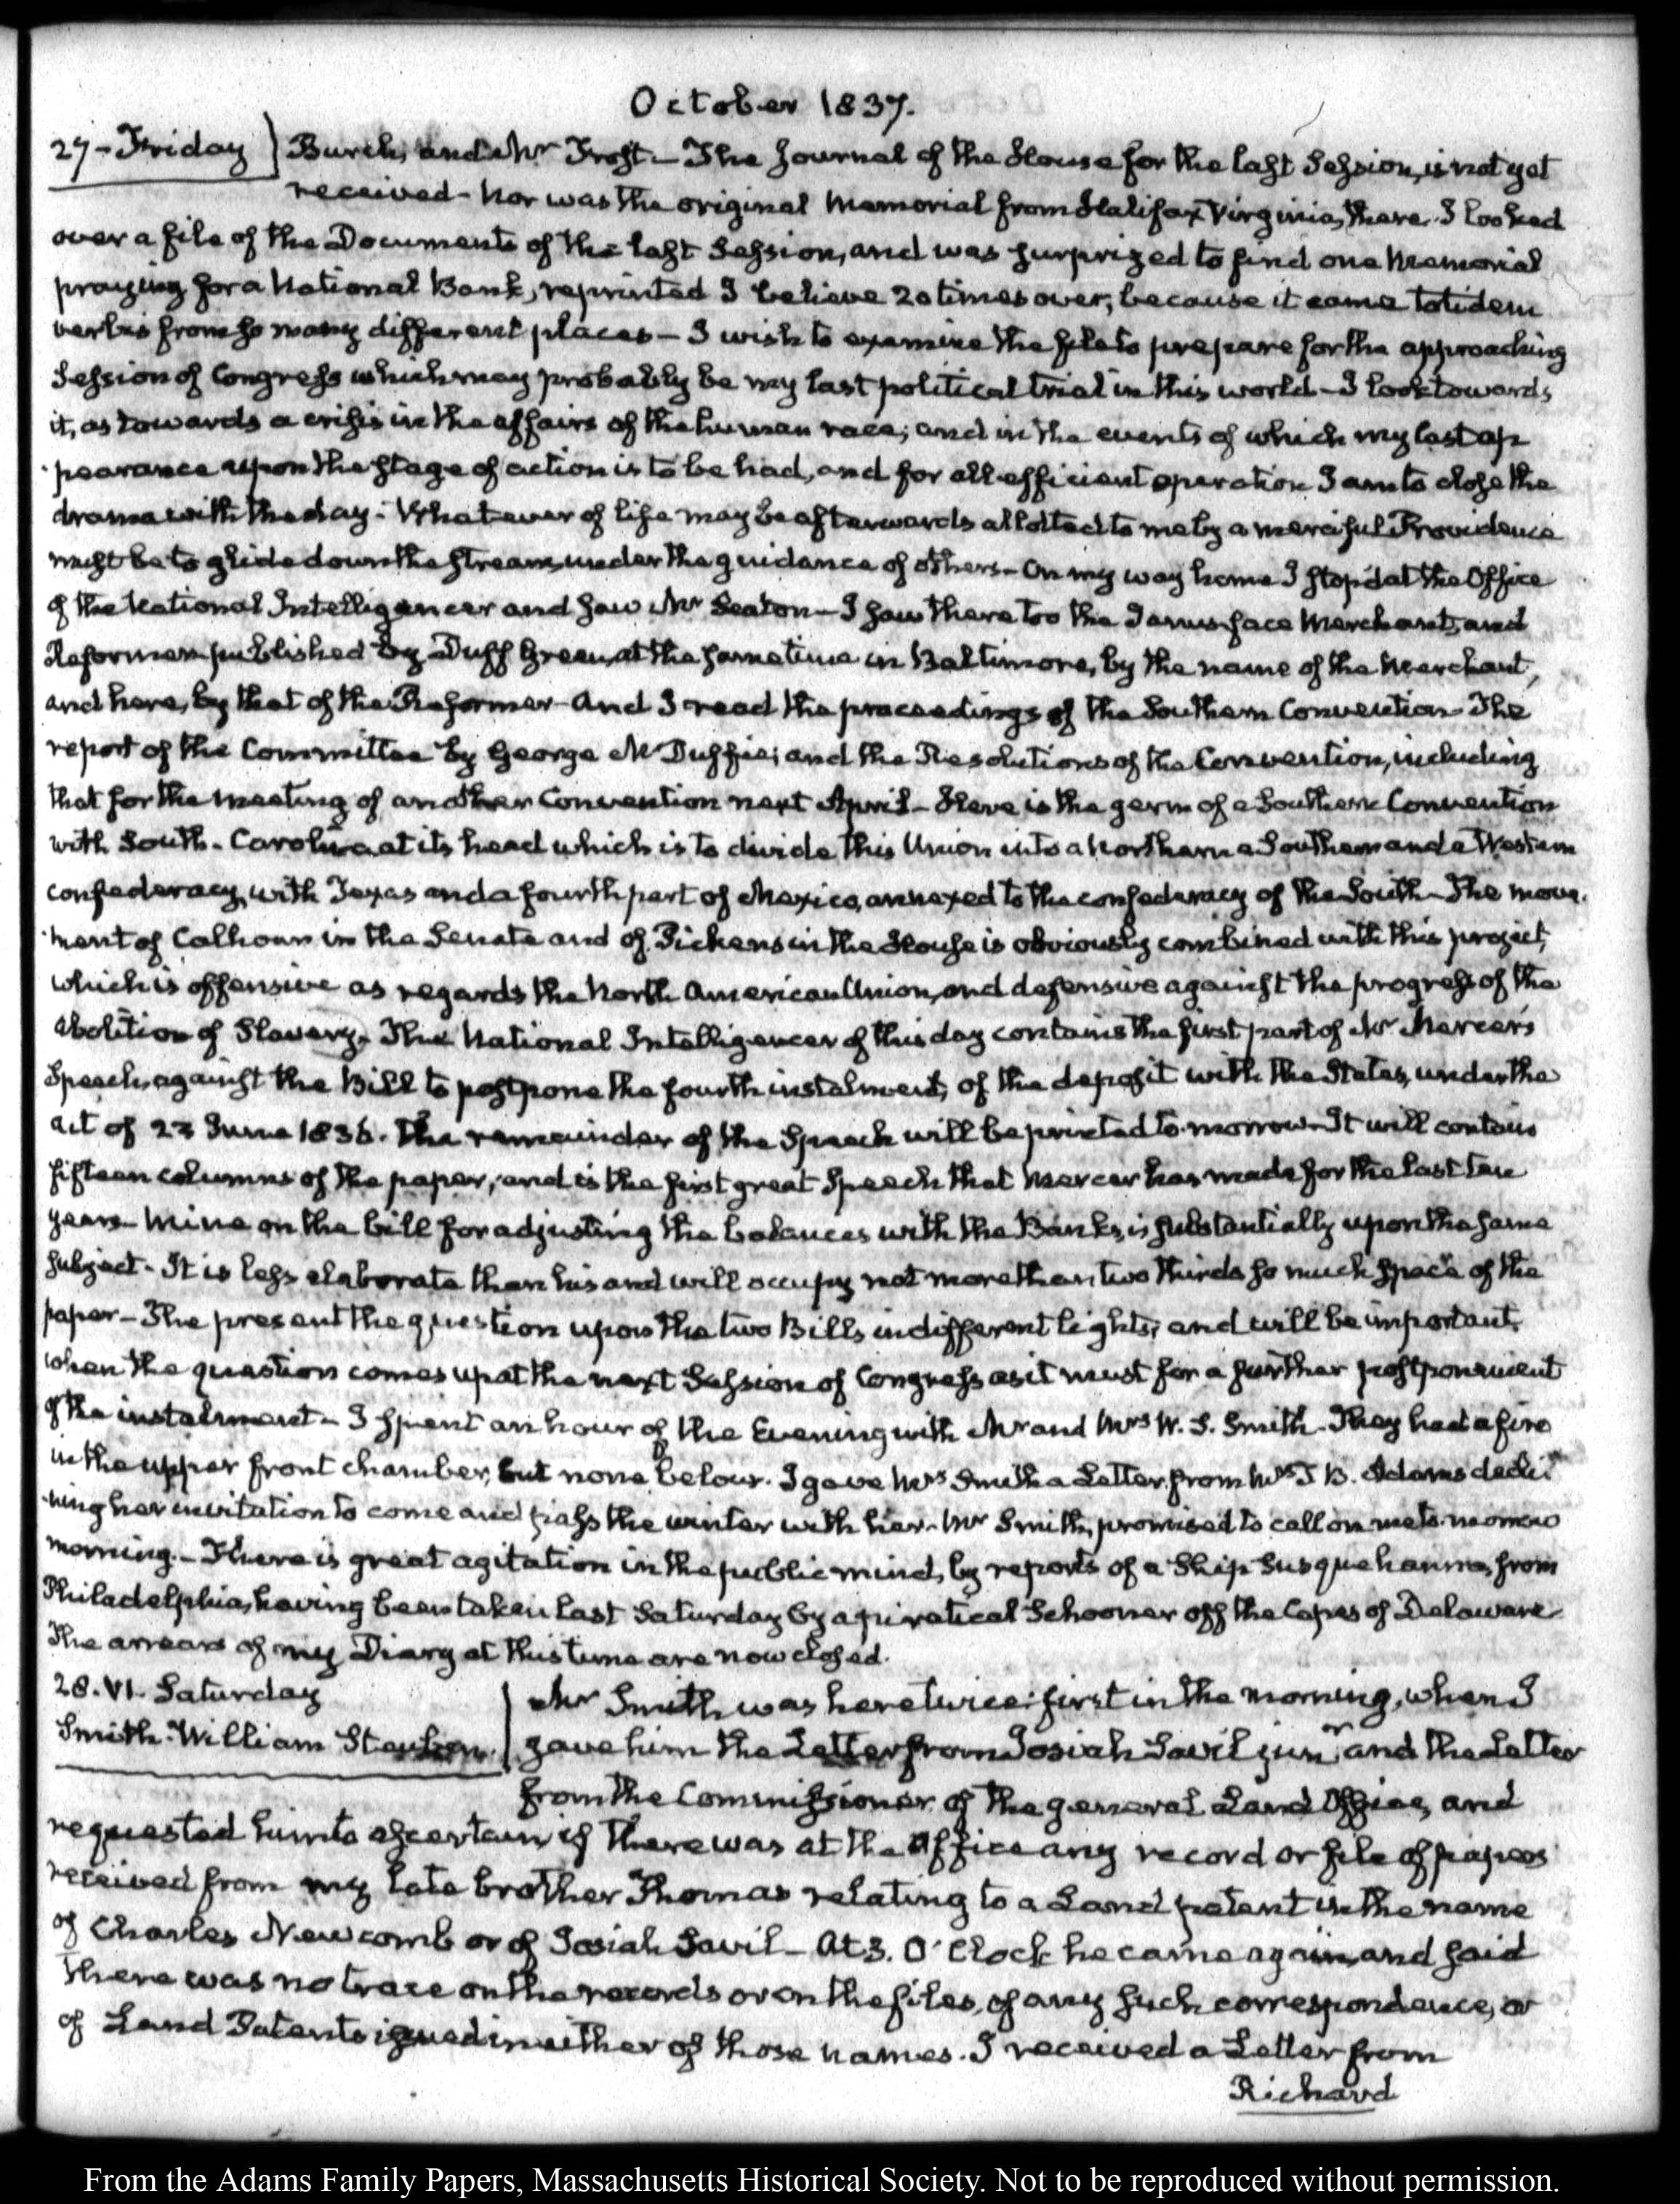 October 1837.
27 - Friday
Burch, and Mr Frost - The Journal of the House for the last Session, is not yet
received - nor was the original Memorial from Halifax Virginia, there. I looked
over a file of the Documents of the last Session, and was surprized to find one Memorial
praying for a National Bank, reprinted I believe 20 times over, because it came totidem
verbis from so many different places - I wish to examine the file to prepare for the approaching
Session of Congress which may probably be my last political trial in this world - I look towards
it, as towards a crisis in the affairs of the human race; and in the events of which my last ap
pearance upon the stage of action is to be had, and for all efficient operation I am to close the
drama with the day - Whatever of life may be afterwards allotted to me by a merciful Providence
must be to glide down the stream, under the guidance of others - On my way home I stop'd at the Office
of the National Intelligencer and saw Mr Seaton - I saw there too the Janus face Merchant, and
Reformer published by Duff Green, at the same time in Baltimore, by the name of the Merchant,
and here, by that of the Reformer - And I read the proceedings of the Southern Convention The
report of the Committee by George McDuffie; and the Resolutions of the Convention, including
that for the meeting of another Convention next April - Here is the germ of a Southern Convention
with South-Carolina at its head which is to divide this Union into a Northern a Southern and a Western
confederacy, with Texas and a fourth part of Mexico, annexed to the confederacy of the South - The move-
ment of Calhoun in the Senate and of Pickens in the House is obviously combined with this project,
which is offensive as regards the North American Union, and defensive against the progress of the
abolition of Slavery - The National Intelligencer of this day contains the first part of Mr Mercer's
Speech, against the Bill to postpone the fourth instalment, of the deposit with the States, under the
act of 23 June 1836. The remainder of the Speech will be printed to-morrow - It will contain
fifteen columns of the paper, and is the first great Speech that Mercer has made for the last ten
years - Mine on the bill for adjusting the balances with the Banks, is substantially upon the same
subject - It is less elaborate than his and will occupy not more than two thirds so much space of the
paper - The present the question upon the two Bills in different lights, and will be important,
when the question comes up at the next Session of Congress as it must for a further postponement
of the instalment - I spent an hour of the Evening with Mr and Mrs W. S. Smith - They had a fire
in the upper front chamber, but none below. I gave Mrs Smith a Letter from Mrs J B. Adams decli
ning her invitation to come and pass the winter with her - Mr Smith, promised to call on me to-morrow
morning. - There is great agitation in the public mind, by reports of a Ship Susquehanna, from
Philadelphia, having been taken last Saturday by a piratical Schooner off the Capes of Delaware
The arrears of my Diary at this time are now closed.
28. VI. Saturday
Smith. William Steuben.
Mr Smith was here twice: first in the morning, when I
gave him the Letter from Josiah Savil junr and the Letter
from the Commissioner of the general Land Office, and
requested him to ascertain if there was at the Office any record or file of papers
received from my late brother Thomas relating to a Land patent in the name
of Charles Newcomb or of Josiah Savil - At 3. O'Clock he came again, and said
there was no trace on the records or on the files, of any such correspondence, or
of Land Patents issued in either of those names. I received a Letter from
Richard
From the Adams Family Papers, Massachusetts Historical Society. Not to be reproduced without permission.